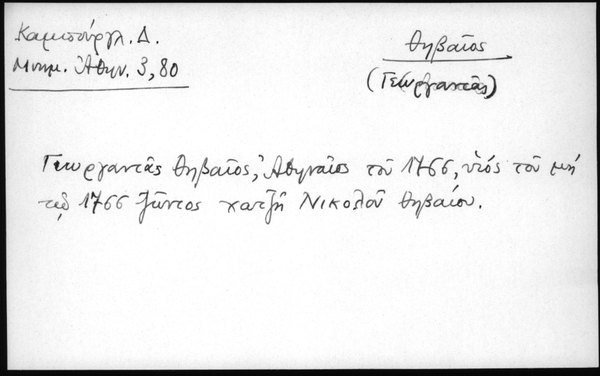 Καμπούργλ. Δ.
Μνημ. Ἀθην. 3, 80
Θηβαῖος
(Γεωργαντᾶς)
Γεωργαντᾶς Θηβαῖος, Ἀθηναῖος τοῦ 1766, υἱός τοῦ μή
τῷ 1766 ζῶντος χατζῆ Νικολοῦ Θηβαίου.